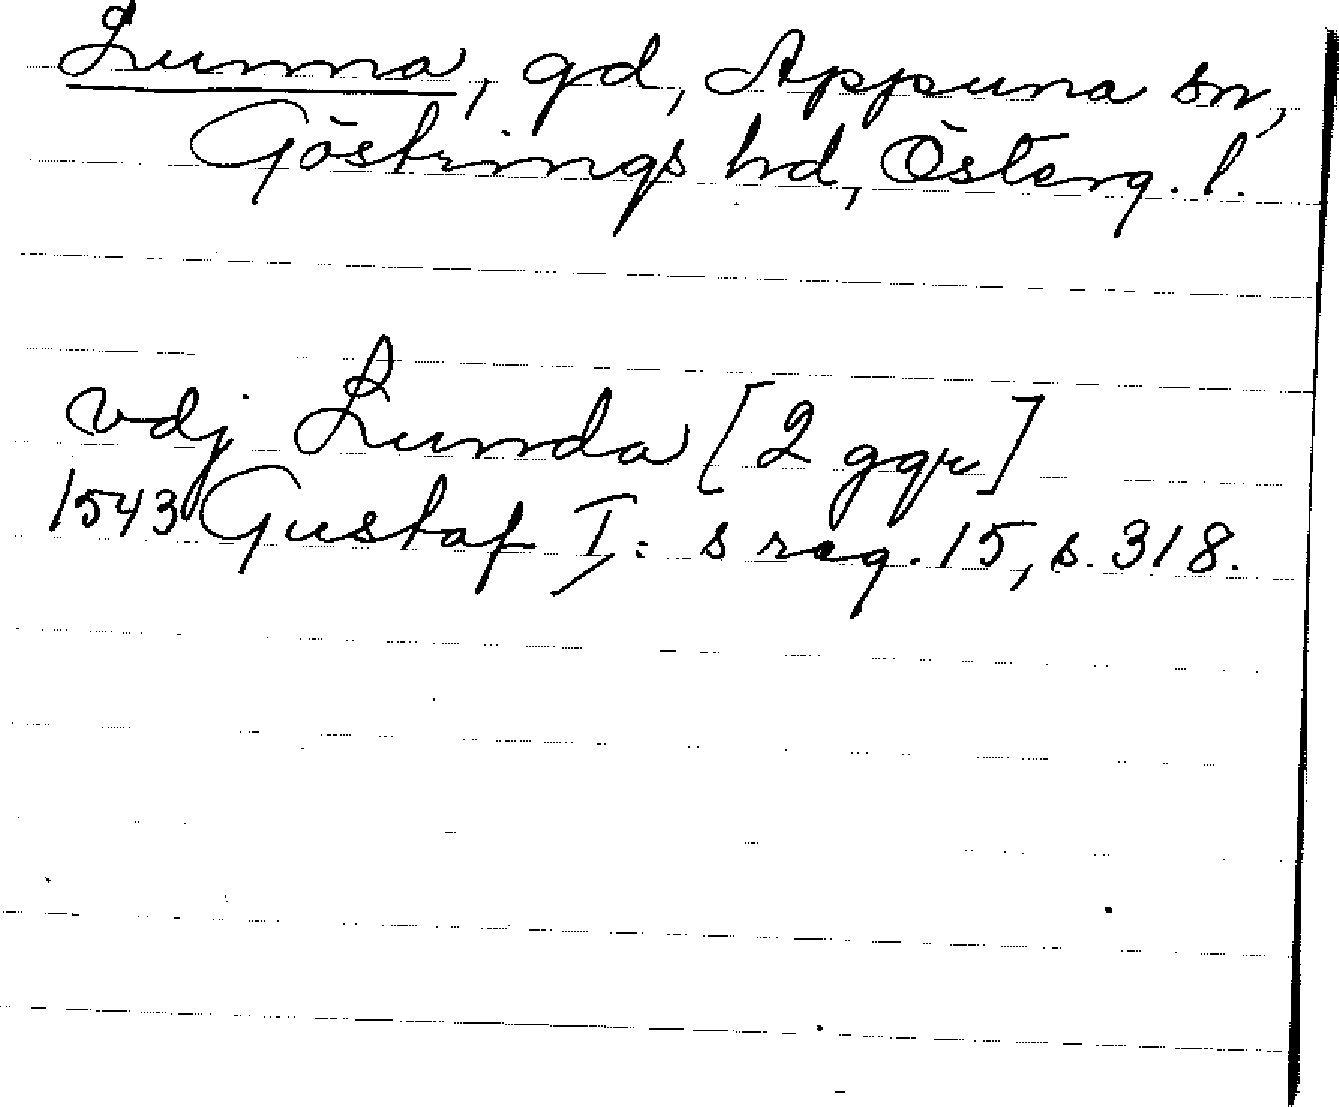 Lunna, gd, Appuna sn,
Göstrings hd, Österg. l.
vdj Lunda [2 ggr]
1543 Gustaf I: s reg. 15, s. 318.